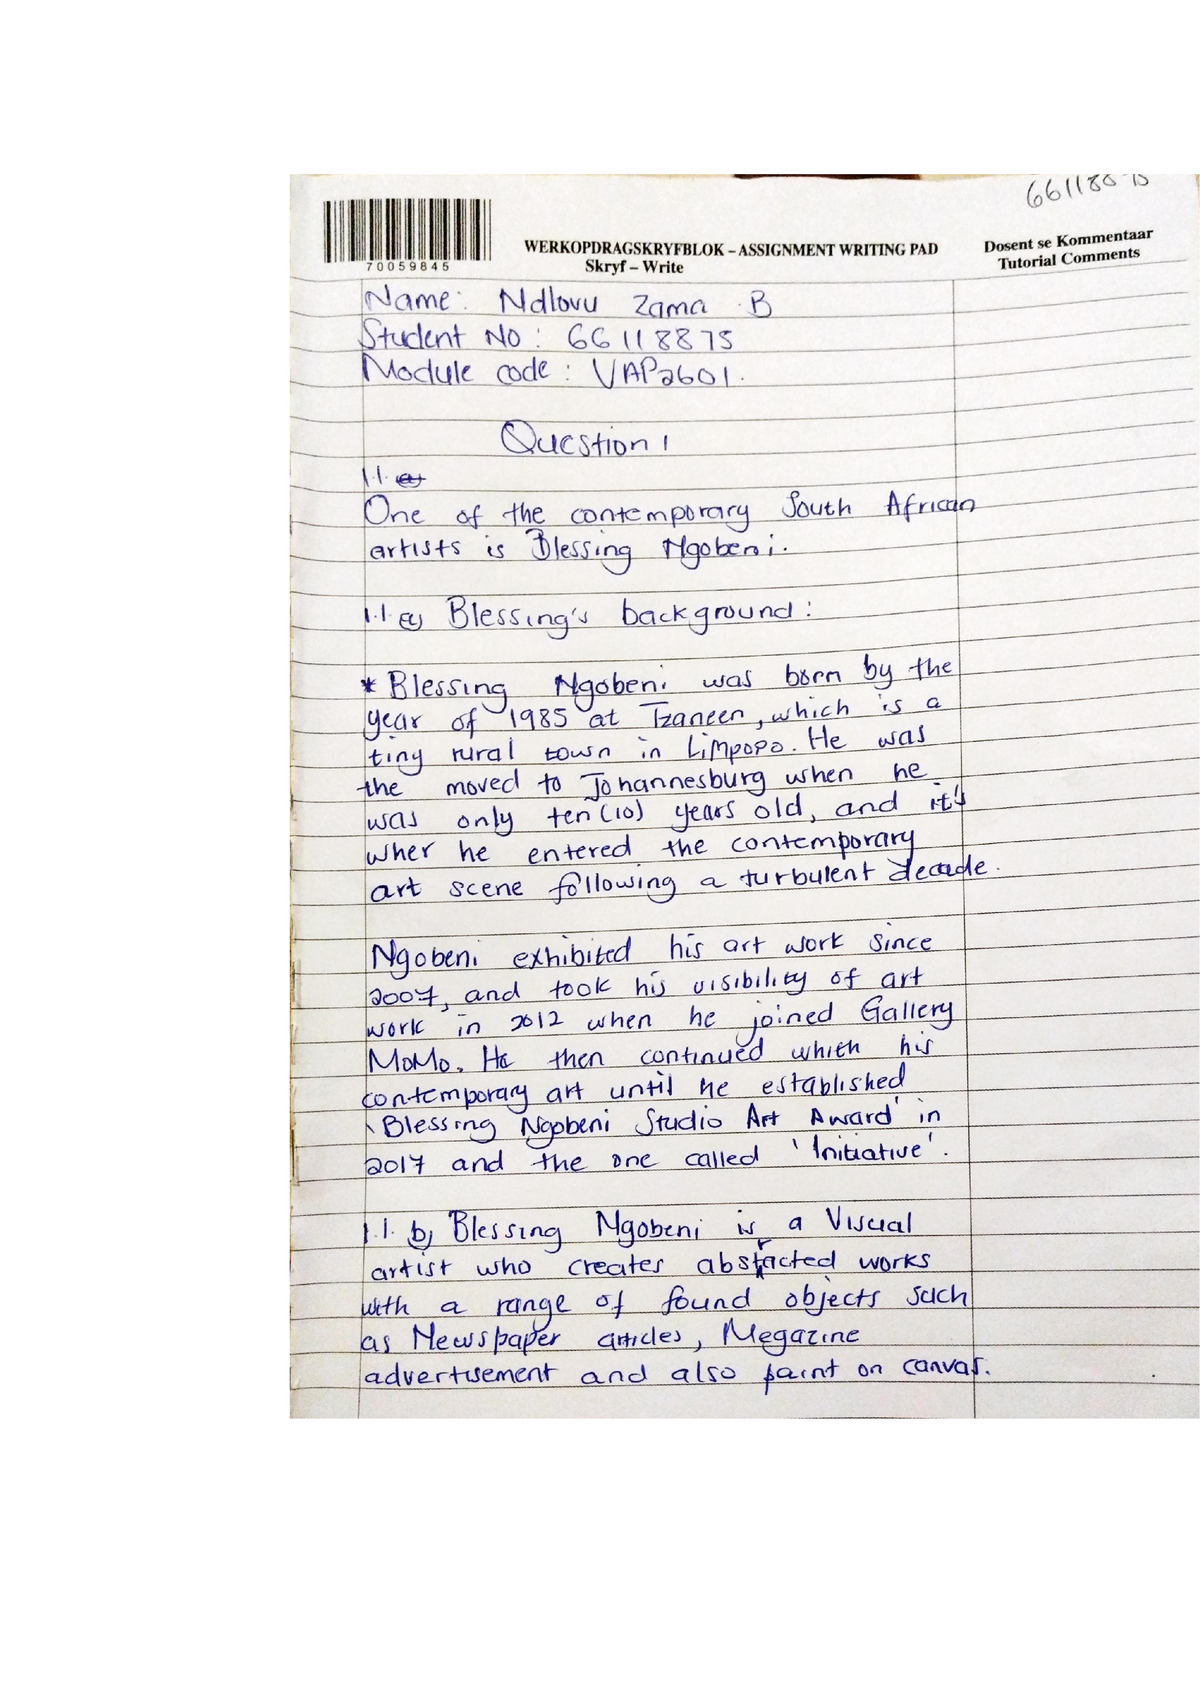 66118875
70059845
WERKOPDRAGSKRYFBLOK – ASSIGNMENT WRITING PAD
Skryf – Write
Dosent se Kommentaar
Tutorial Comments
Name: Ndlovu Zama B
Student No: 66118875
Module code: VAP2601.
Question 1
1.1. a)
One of the contemporary South African
artists is Blessing Ngobeni.
1.1 a) Blessing's background:
* Blessing Ngobeni was born by the
year of 1985 at Tzaneen, which is a
tiny rural town in Limpopo. He was
the moved to Johannesburg when he
was only ten (10) years old, and it's
wher he entered the contemporary
art scene following a turbulent decade.
Ngobeni exhibited his art work since
2007, and took his visibility of art
work in 2012 when he joined Gallery
MoMo. He then continued which his
contemporary art until he established
'Blessing Ngobeni Studio Art Award' in
2017 and the one called 'Initiative'.
1.1. b) Blessing Ngobeni is a Visual
artist who creates abstracted works
with a range of found objects such
as Newspaper articles, Megazine
advertisement and also paint on canvas.